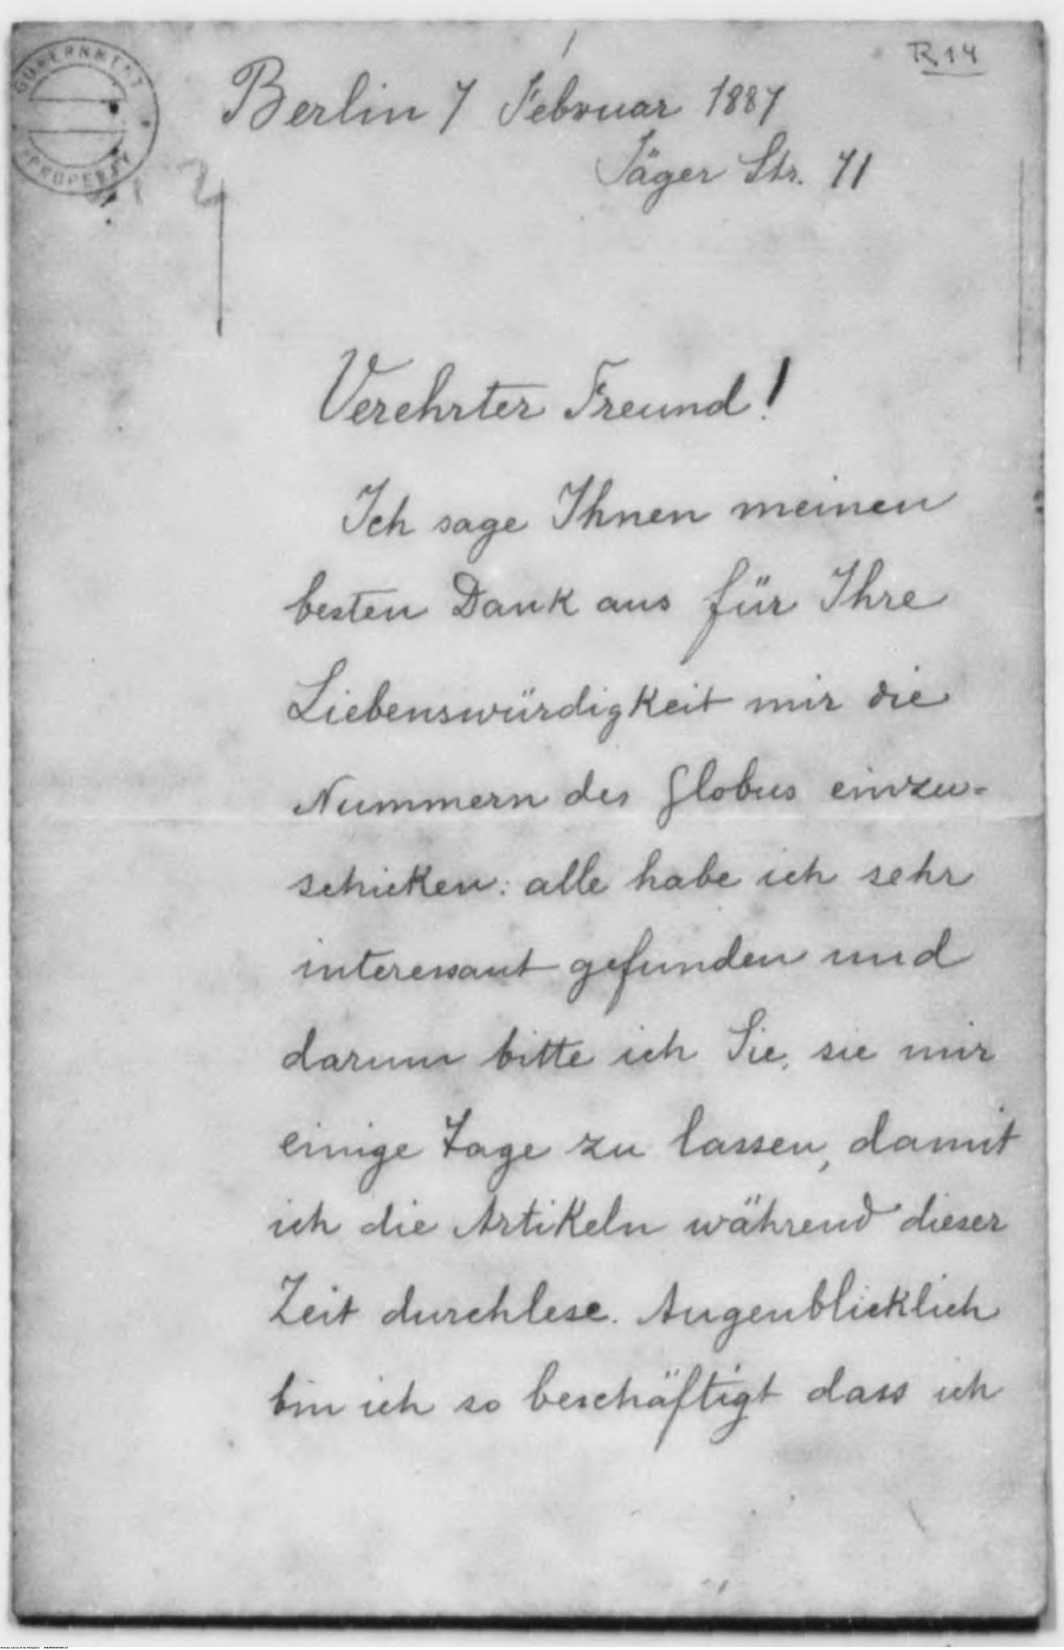 R.14
GOVERNMENT
PROPERTY
Berlin 7 Februar 1887
Jäger Str. 71
Verehrter Freund!
Ich sage Ihnen meinen
besten Dank aus für Ihre
Liebenswürdigkeit mir die
Nummern des Globus einzu-
schicken: alle habe ich sehr
interessant gefunden und
darum bitte ich Sie, sie mir
einige Tage zu lassen, damit
ich die Artikeln während dieser
Zeit durchlese. Augenblicklich
bin ich so beschäftigt dass ich